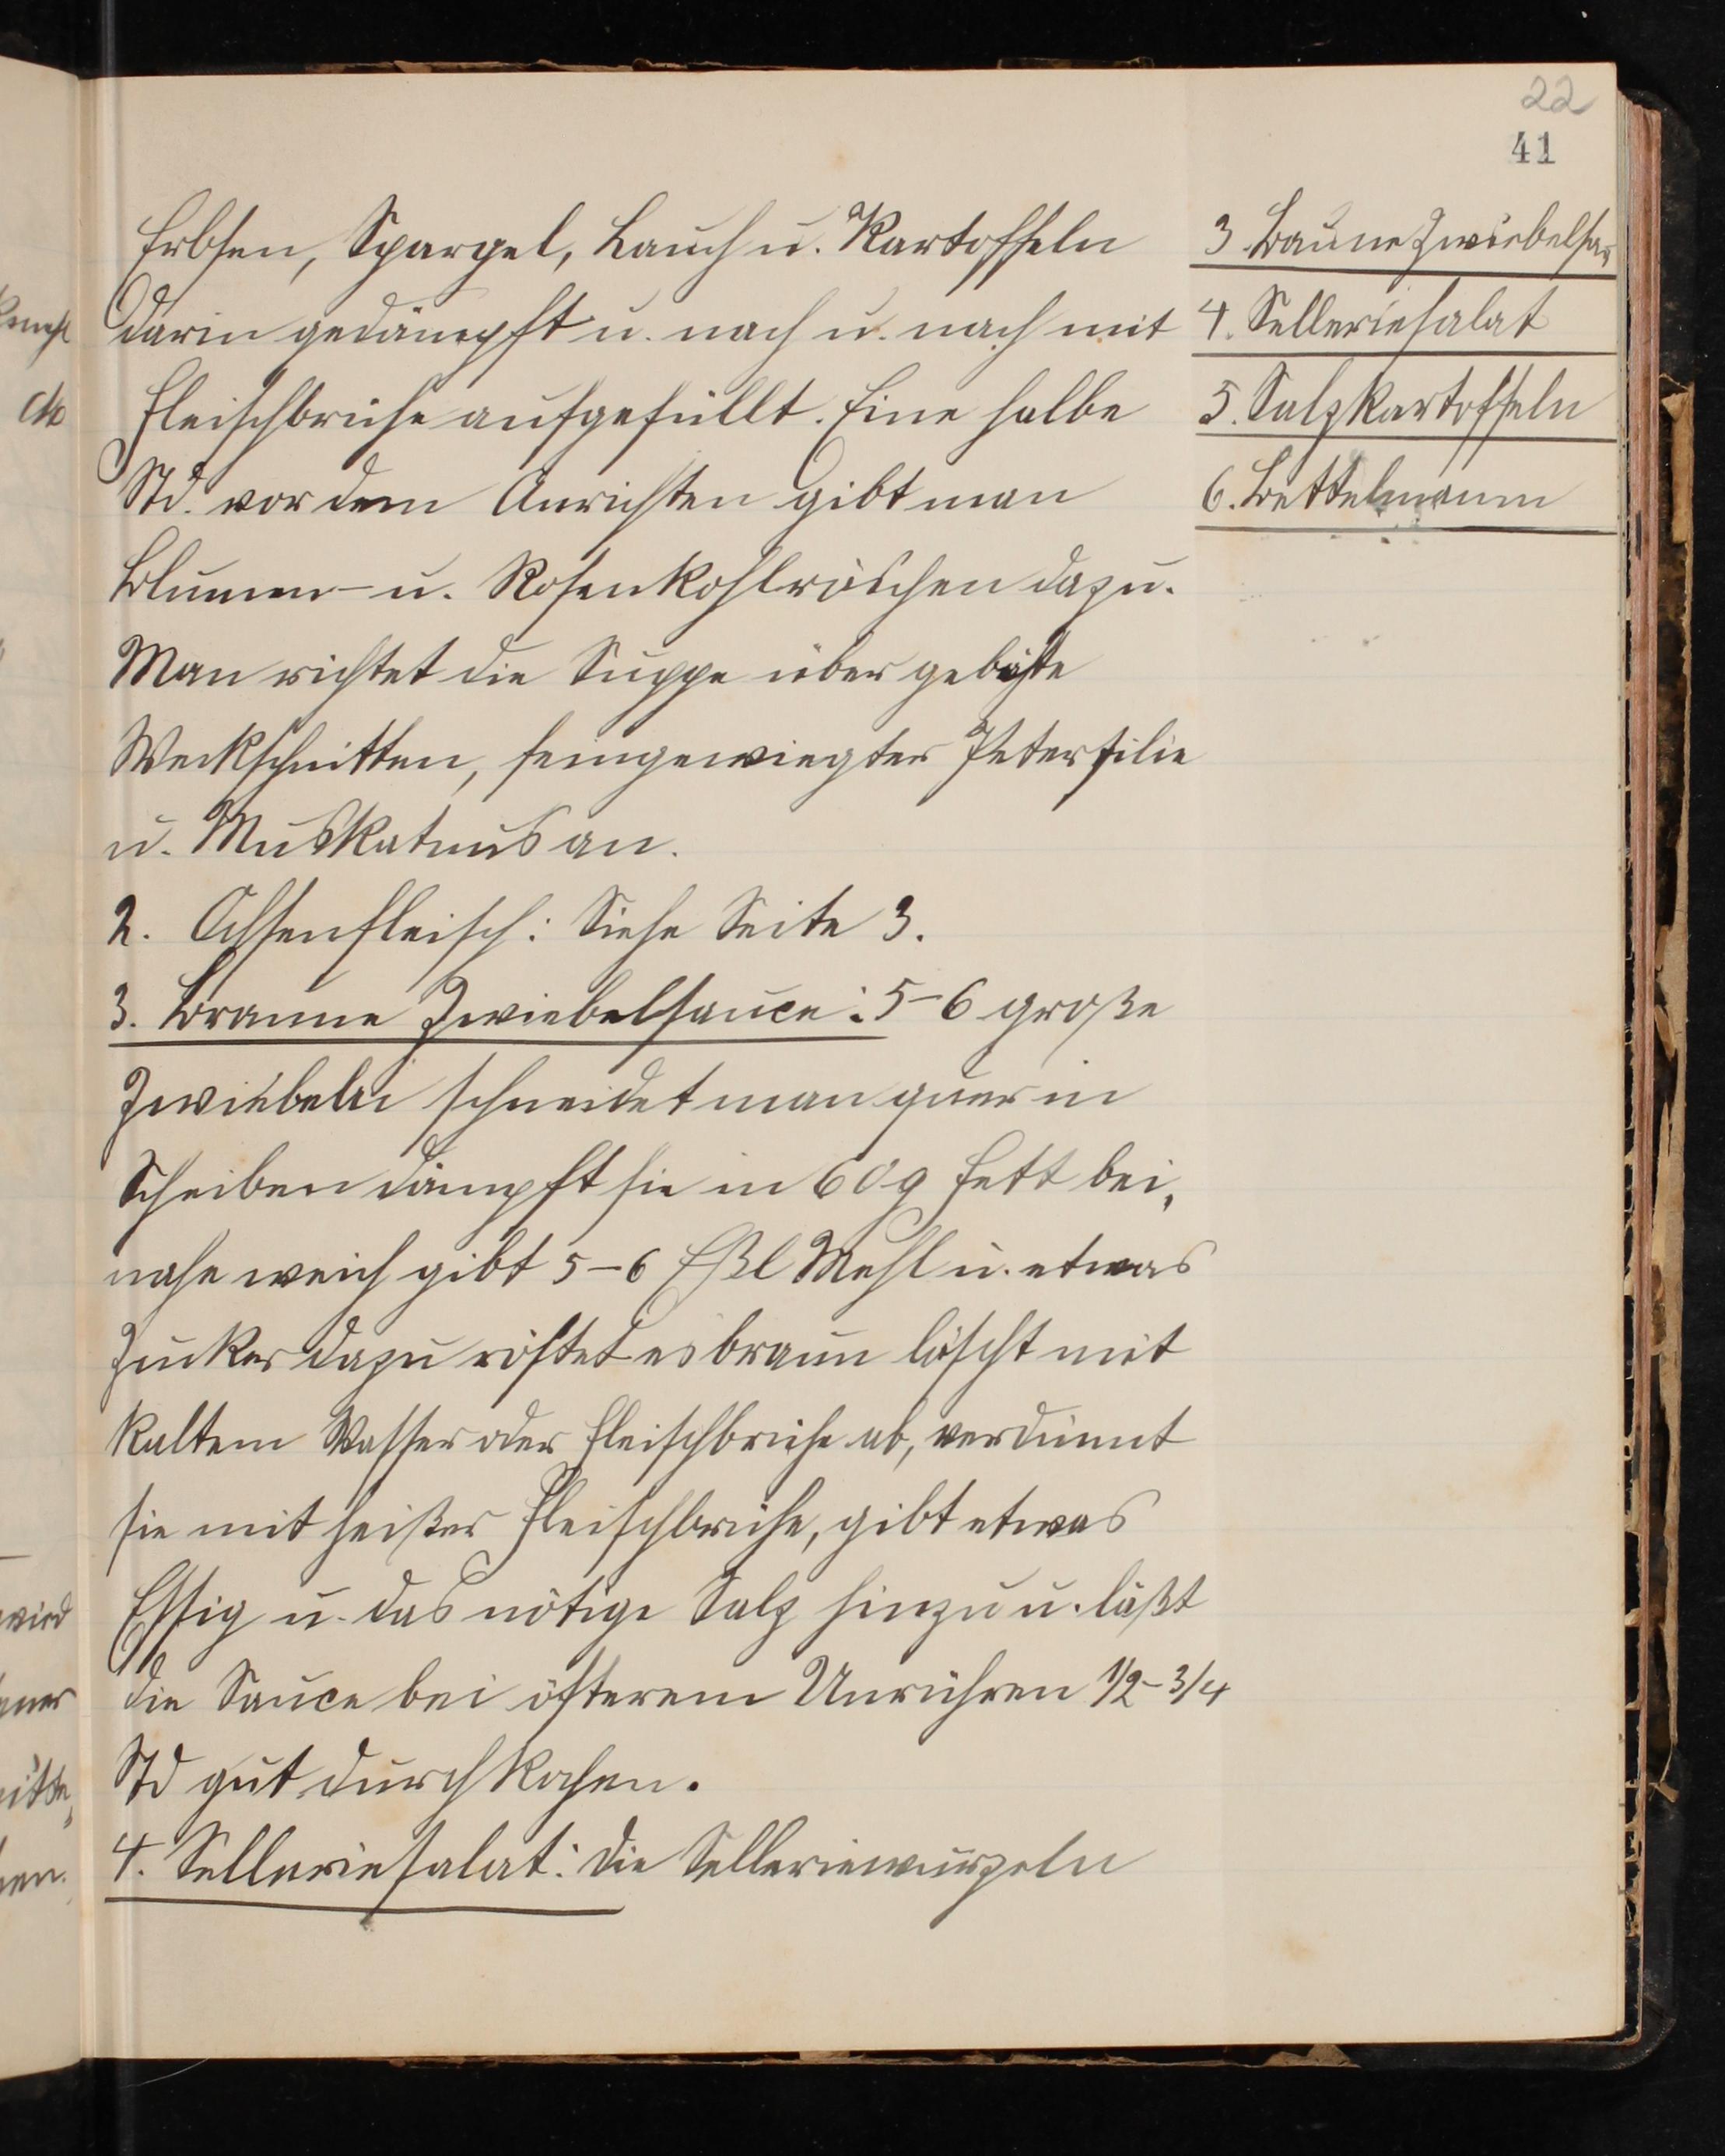 22
41
Erbsen, Spargel, Lauch u. Kartoffeln
darin gedämpft u. nach u. nach mit
Fleischbrühe aufgefüllt. Eine halbe
Std. vor dem Anrichten gibt man
Blumen- u. Rosenkohlröschen dazu.
Man richtet die Suppe über gebähte
Weckschnitten, feingewiegter Petersilie
u. Muskatnus an.
2. Ochsenfleisch: Siehe Seite 3.
3. Braune Zwiebelsauce: 5-6 große
Zwiebeln schneidet man quer in
Scheiben dämpft sie in 60 g Fett bei,
nahe weich gibt 5-6 Eßl Mehl u. etwas
Zucker dazu röstet es braun löscht mit
kaltem Wasser oder Fleischbrühe ab, verdünnt
sie mit heißer Fleischbrühe, gibt etwas
Essig u. das nötige Salz hinzu u. läßt
die Sauce bei öfterem Umrühren 1/2-3/4
Std gut durchkochen.
4. Selleriesalat: Die Selleriewurzeln
3. Baune Zwiebelsa,
4. Selleriesalat
5. Salzkartoffeln
6. Bettelmann
wird